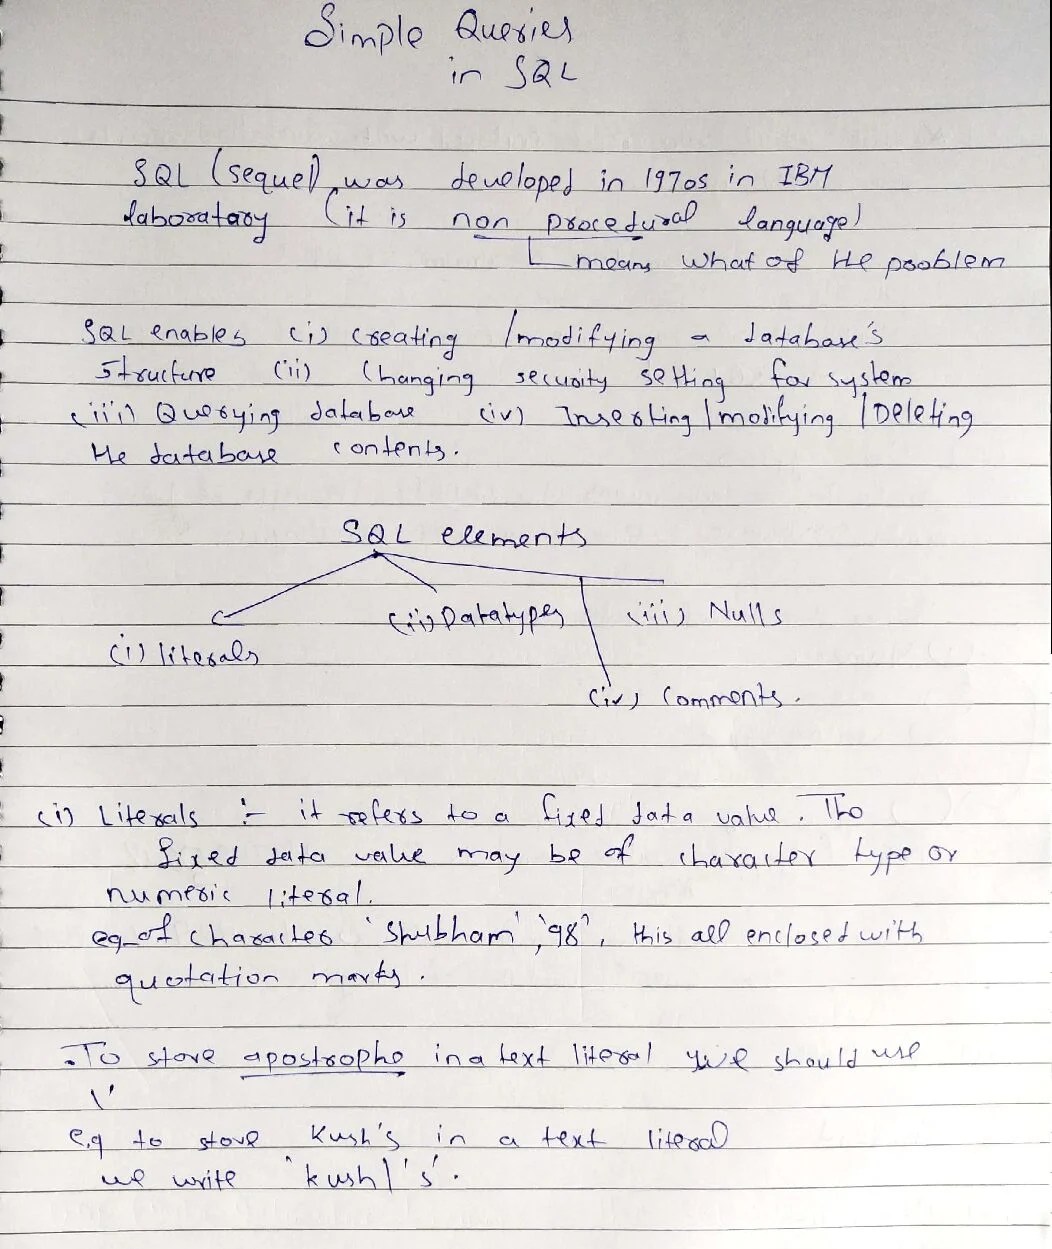 Simple Queries
in SQL
SQL (sequel) was developed in 1970s in IBM
laboratary (it is non procedural language)
means what of the problem
SQL enables (i) creating /modifying a database's
structure (ii) Changing security setting for system
(iii) Querying database (iv) Inserting / modifying / Deleting
the database contents.
SQL elements
(ii) Datatypes (iii) Nulls
(i) literals
(iv) Comments.
(i) Literals :- it refers to a fixed data value. The
fixed data value may be of character type or
numeric literal.
eg of character 'Shubham', '98', this all enclosed with
quotation marks.
. To store apostrophe in a text literal we should use
\'
e.g to store Kush's in a text literal
we write 'kush\'s'.